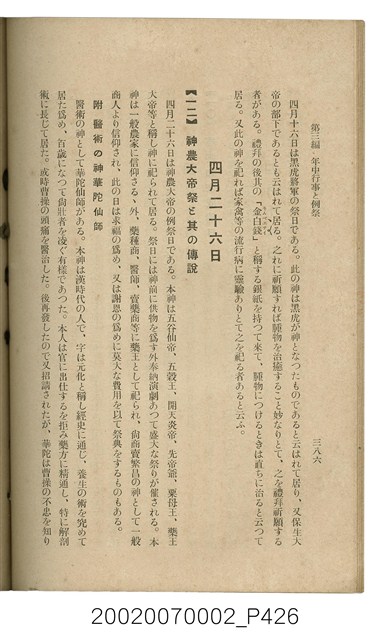 第三編　年中行事と例祭
三八六
四月十六日は黑虎將軍の祭日である。此の神は黑虎が神となつたものであると云はれて居り、又保生大
帝の部下であるとも云はれて居る。之れに祈願すれば腫物を治癒すること妙なりとて、之を禮拜祈願する
者がある。禮拜の後其の「金白錢」と稱する銀紙を持つて來て、腫物につけるときは直ちに治ると云つて
居る。又此の神を祀れば家禽等の流行病に靈驗ありとて之を祀る者あると云ふ。
四月二十六日
【一二】神農大帝祭と其の傳說
四月二十六日は神農大帝の例祭日である。本神は五谷仙帝、五穀王、開天炎帝、先帝爺、粟母王、藥王
大帝等と稱し神に祀られて居る。祭日には神前に供物を爲す外奉納演劇あつて盛大な祭りが催される。本
神は一般農家に信仰さるゝ外、藥種商、醫師、賣藥商等に藥王として祀られ、尙商賣繁昌の神として一般
商人より信仰され、此の日は求福の爲め、又は謝恩の爲めに莫大な費用を以て祭典をするものもある。
附 醫術の神華陀仙師
醫術の神として華陀仙師がある。本神は漢時代の人で、字は元化と稱し經史に通じ、養生の術を究めて
居た爲め、百歲になつて尙壯者を凌ぐ有樣であつた。本人は官に出仕するを拒み藥方に精通し、特に解剖
術に長じて居た。或時曹操の頭痛を醫治した。後再發したので又招請されたが、華陀は曹操の不忠を知り
20020070002_P426